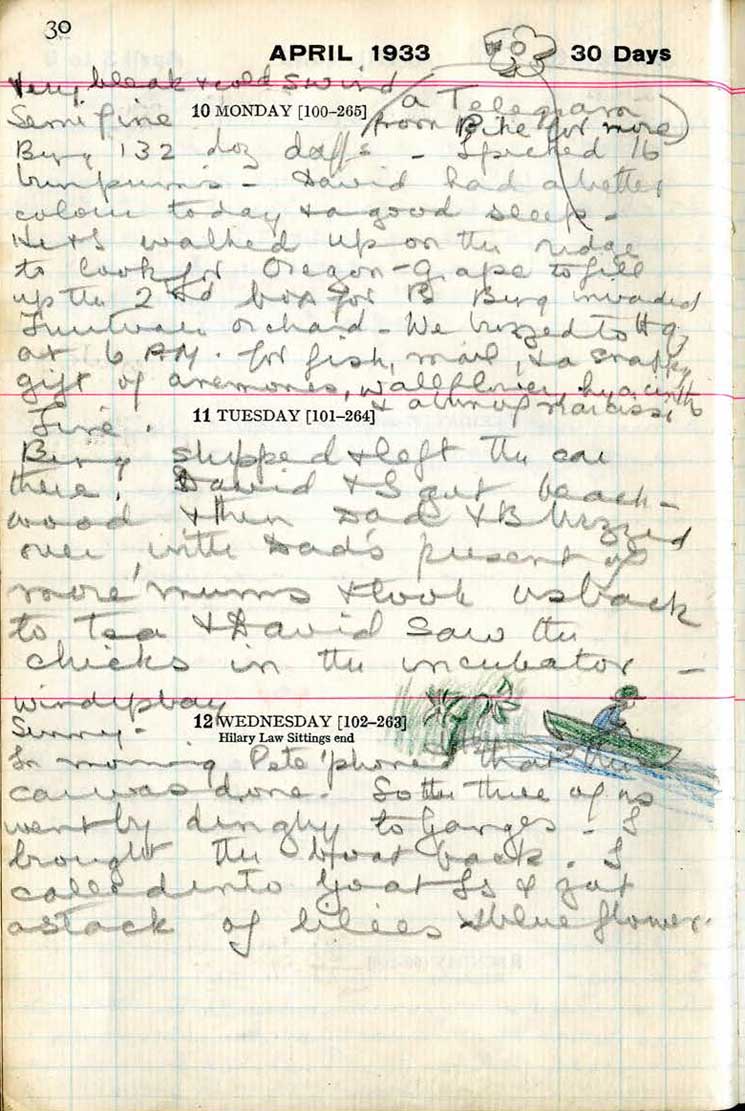 30
APRIL 1933 30 Days
Very bleak & cold S wind
10 MONDAY [100–265]
a Telegram
Semi fine
from Pike for more)
132 doz daffs – 16
– David had a better
colour today & a good sleep –
He & I walked up on the ridge
to look for Oregon-Grape to fill
up the 2nd box for B invaded
orchard – We buzzed to Hq
at 6 AM. for fish, mail, & a snappy
gift of anemones, wallflower, hyacinth
& narcissi
11 TUESDAY [101–264]
Fine.
shipped & left the car
there. David & I got beach-
wood & then Dad & B buzzed
over, with Dad's present of
more mums & took us back
to tea & David saw the
chicks in the incubator –
12 WEDNESDAY [102–263]
Hilary Law Sittings end
windy bay
Sunny –
In morning Pete 'phoned that the
car was done. So the three of us
went by dinghy to Ganges – I
brought the boat back. I
called into & got
a stack of lilies & blue flower.